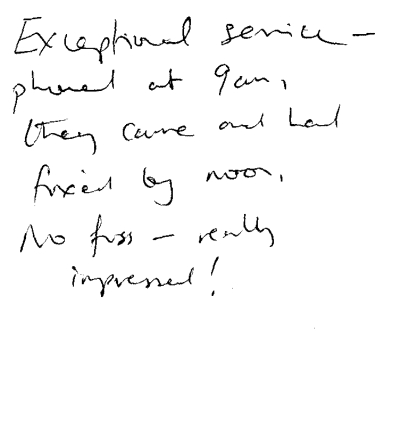 Exceptional service –
phoned at 9am,
they came and had
fixed by noon.
No fuss – really
impressed!